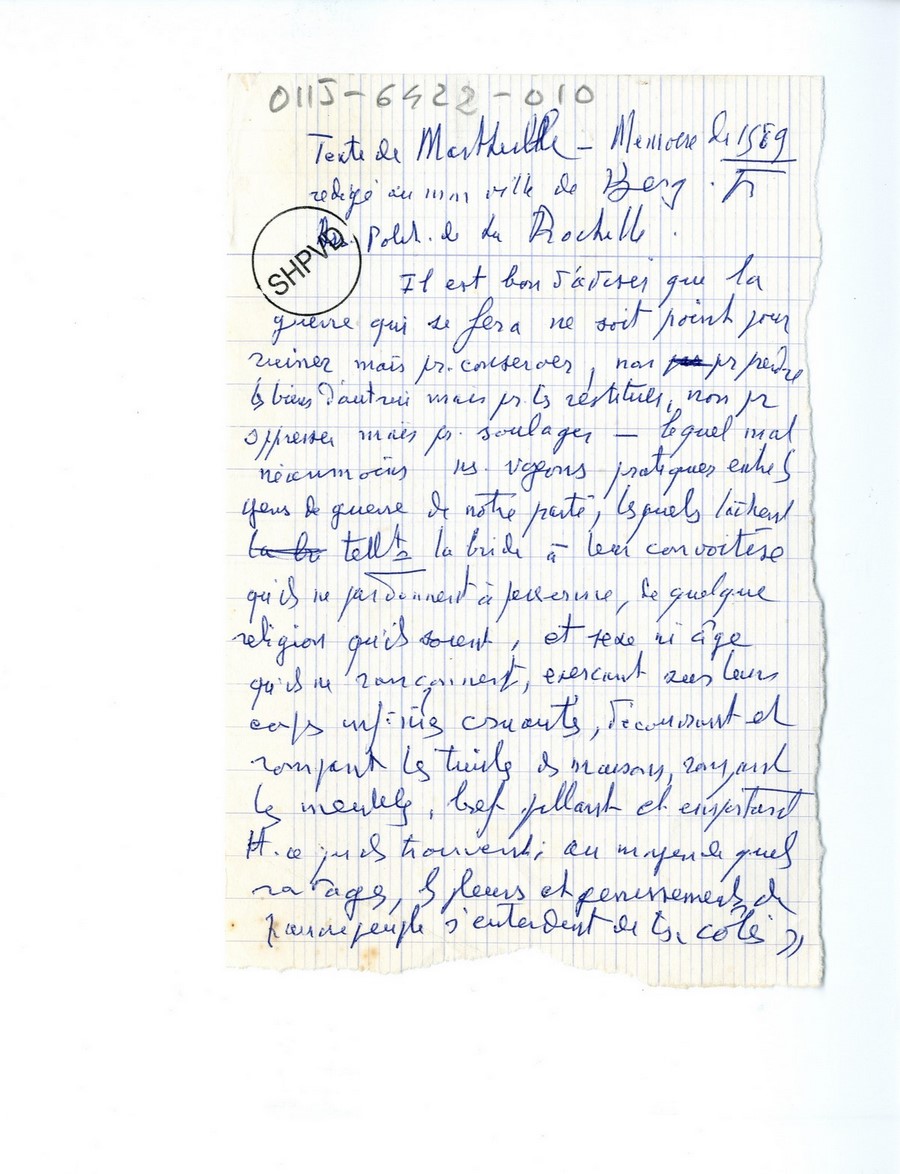 0115-6422-010
Texte de – Memoire de 1569
redigé au nom ville de Berg.
polit. de La Rochelle.
SHPVD
Il est bon d'adviser que la
guerre qui se fera ne soit point pour
ruiner mais pr. conserver, non pr perdre
ls biens d'autrui mais pr ls restituer, non pr
oppresser mais pr. soulager – lequel mal
néanmoins ns. voyons pratiquer entre ls
gens de guerre de notre parti, lesquels lâchent
tellt la bride à leur convoitise
qu'ils ne pardonnent à personne, de quelque
religion qu'ils soient, et sexe ni âge
qu'ils ne rançonnent, exerçant sur leurs
corps cruautés, découvrant et
rompant les tuiles ds maisons,
les meubles, bref pillant et emportant
tt. ce qu'ils trouvent; au moyen de quels
ravages, ls pleurs et gémissements du
pauvre peuple s'entendent de ts. côtés »